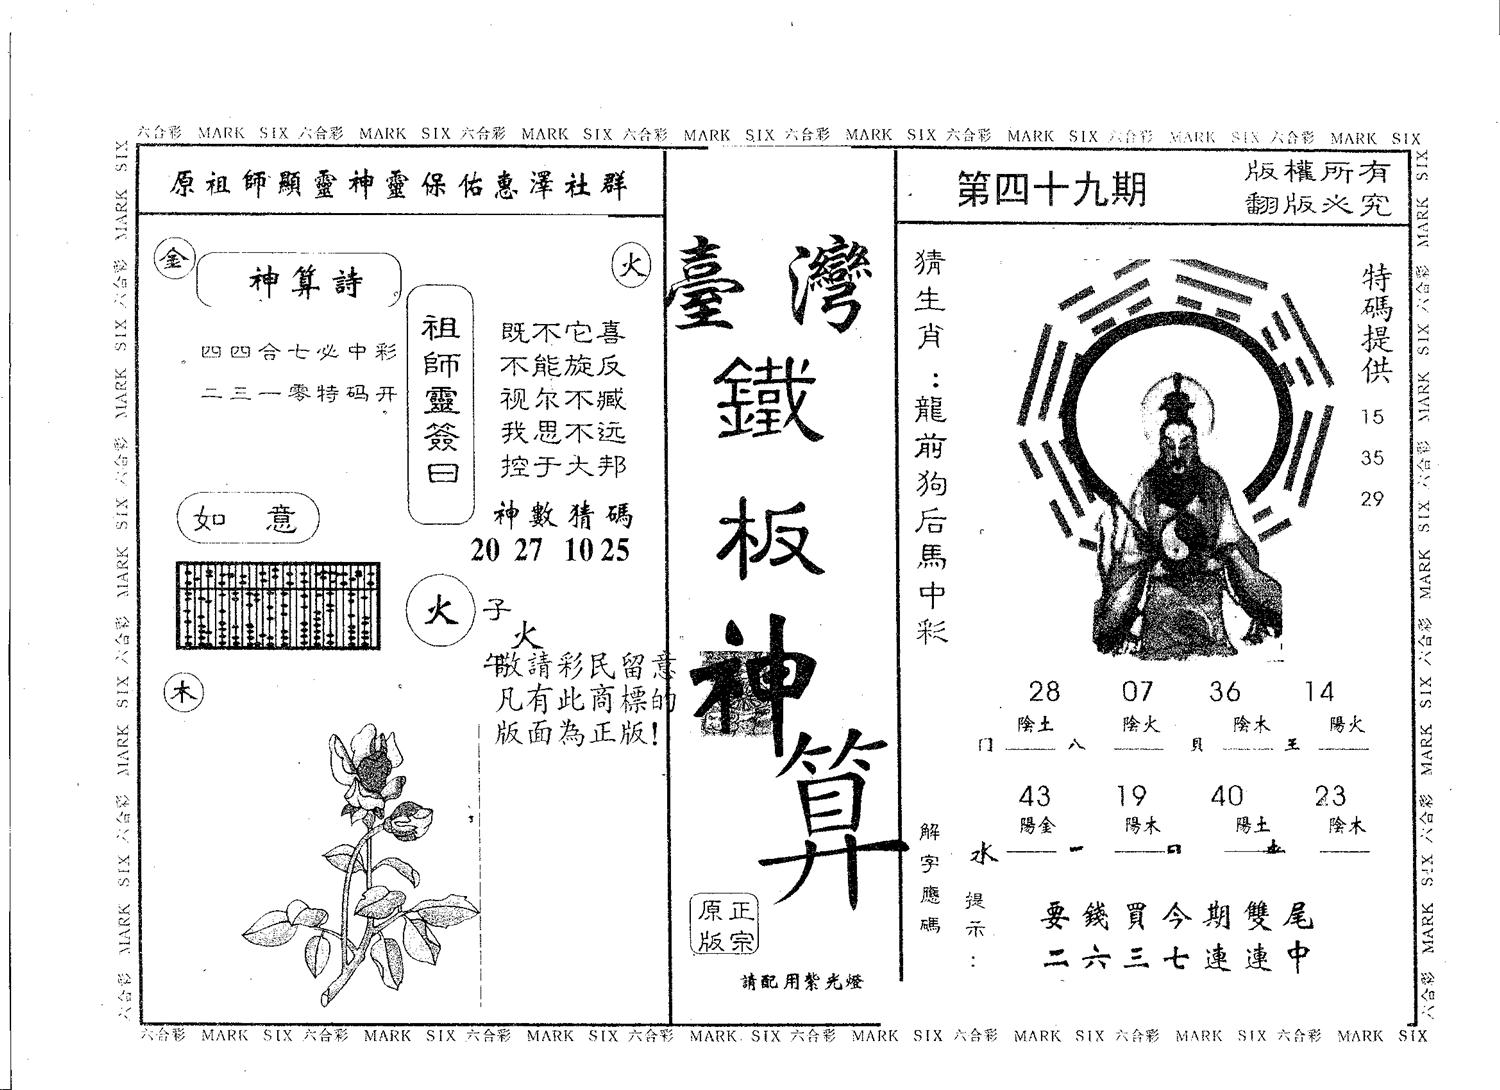 六合彩 MARK SIX 六合彩 MARK SIX 六合彩 MARK SIX 六合彩 MARK SIX 六合彩 MARK SIX 六合彩 MARK SIX 六合彩 MARK SIX 六合彩 MARK SIX
原祖師顯靈神靈保佑惠澤社群
金
神算詩
火
四四合七必中彩
二三一零特码开
祖師靈簽曰
既不它喜
不能旋反
视尔不臧
我思不远
控于大邦
神數猜碼
20 27 10 25
如意
火
子
火
午
敬請彩民留意
凡有此商標的
版面為正版!
木
臺灣
鐵
板
神
算
正宗
原版
請配用紫光燈
第四十九期
版權所有
翻版必究
猜生肖:龍前狗后馬中彩
特碼提供
15
35
29
28 07 36 14
陰土 陰火 陰木 陽火
门 八 貝 王
43 19 40 23
陽金 陽木 陽土 陰木
水 一 日
解字應碼
提示:
要錢買今期雙尾
二六三七連連中
六合彩 MARK SIX 六合彩 MARK SIX 六合彩 MARK SIX 六合彩 MARK SIX 六合彩 MARK SIX 六合彩 MARK SIX 六合彩 MARK SIX 六合彩 MARK SIX